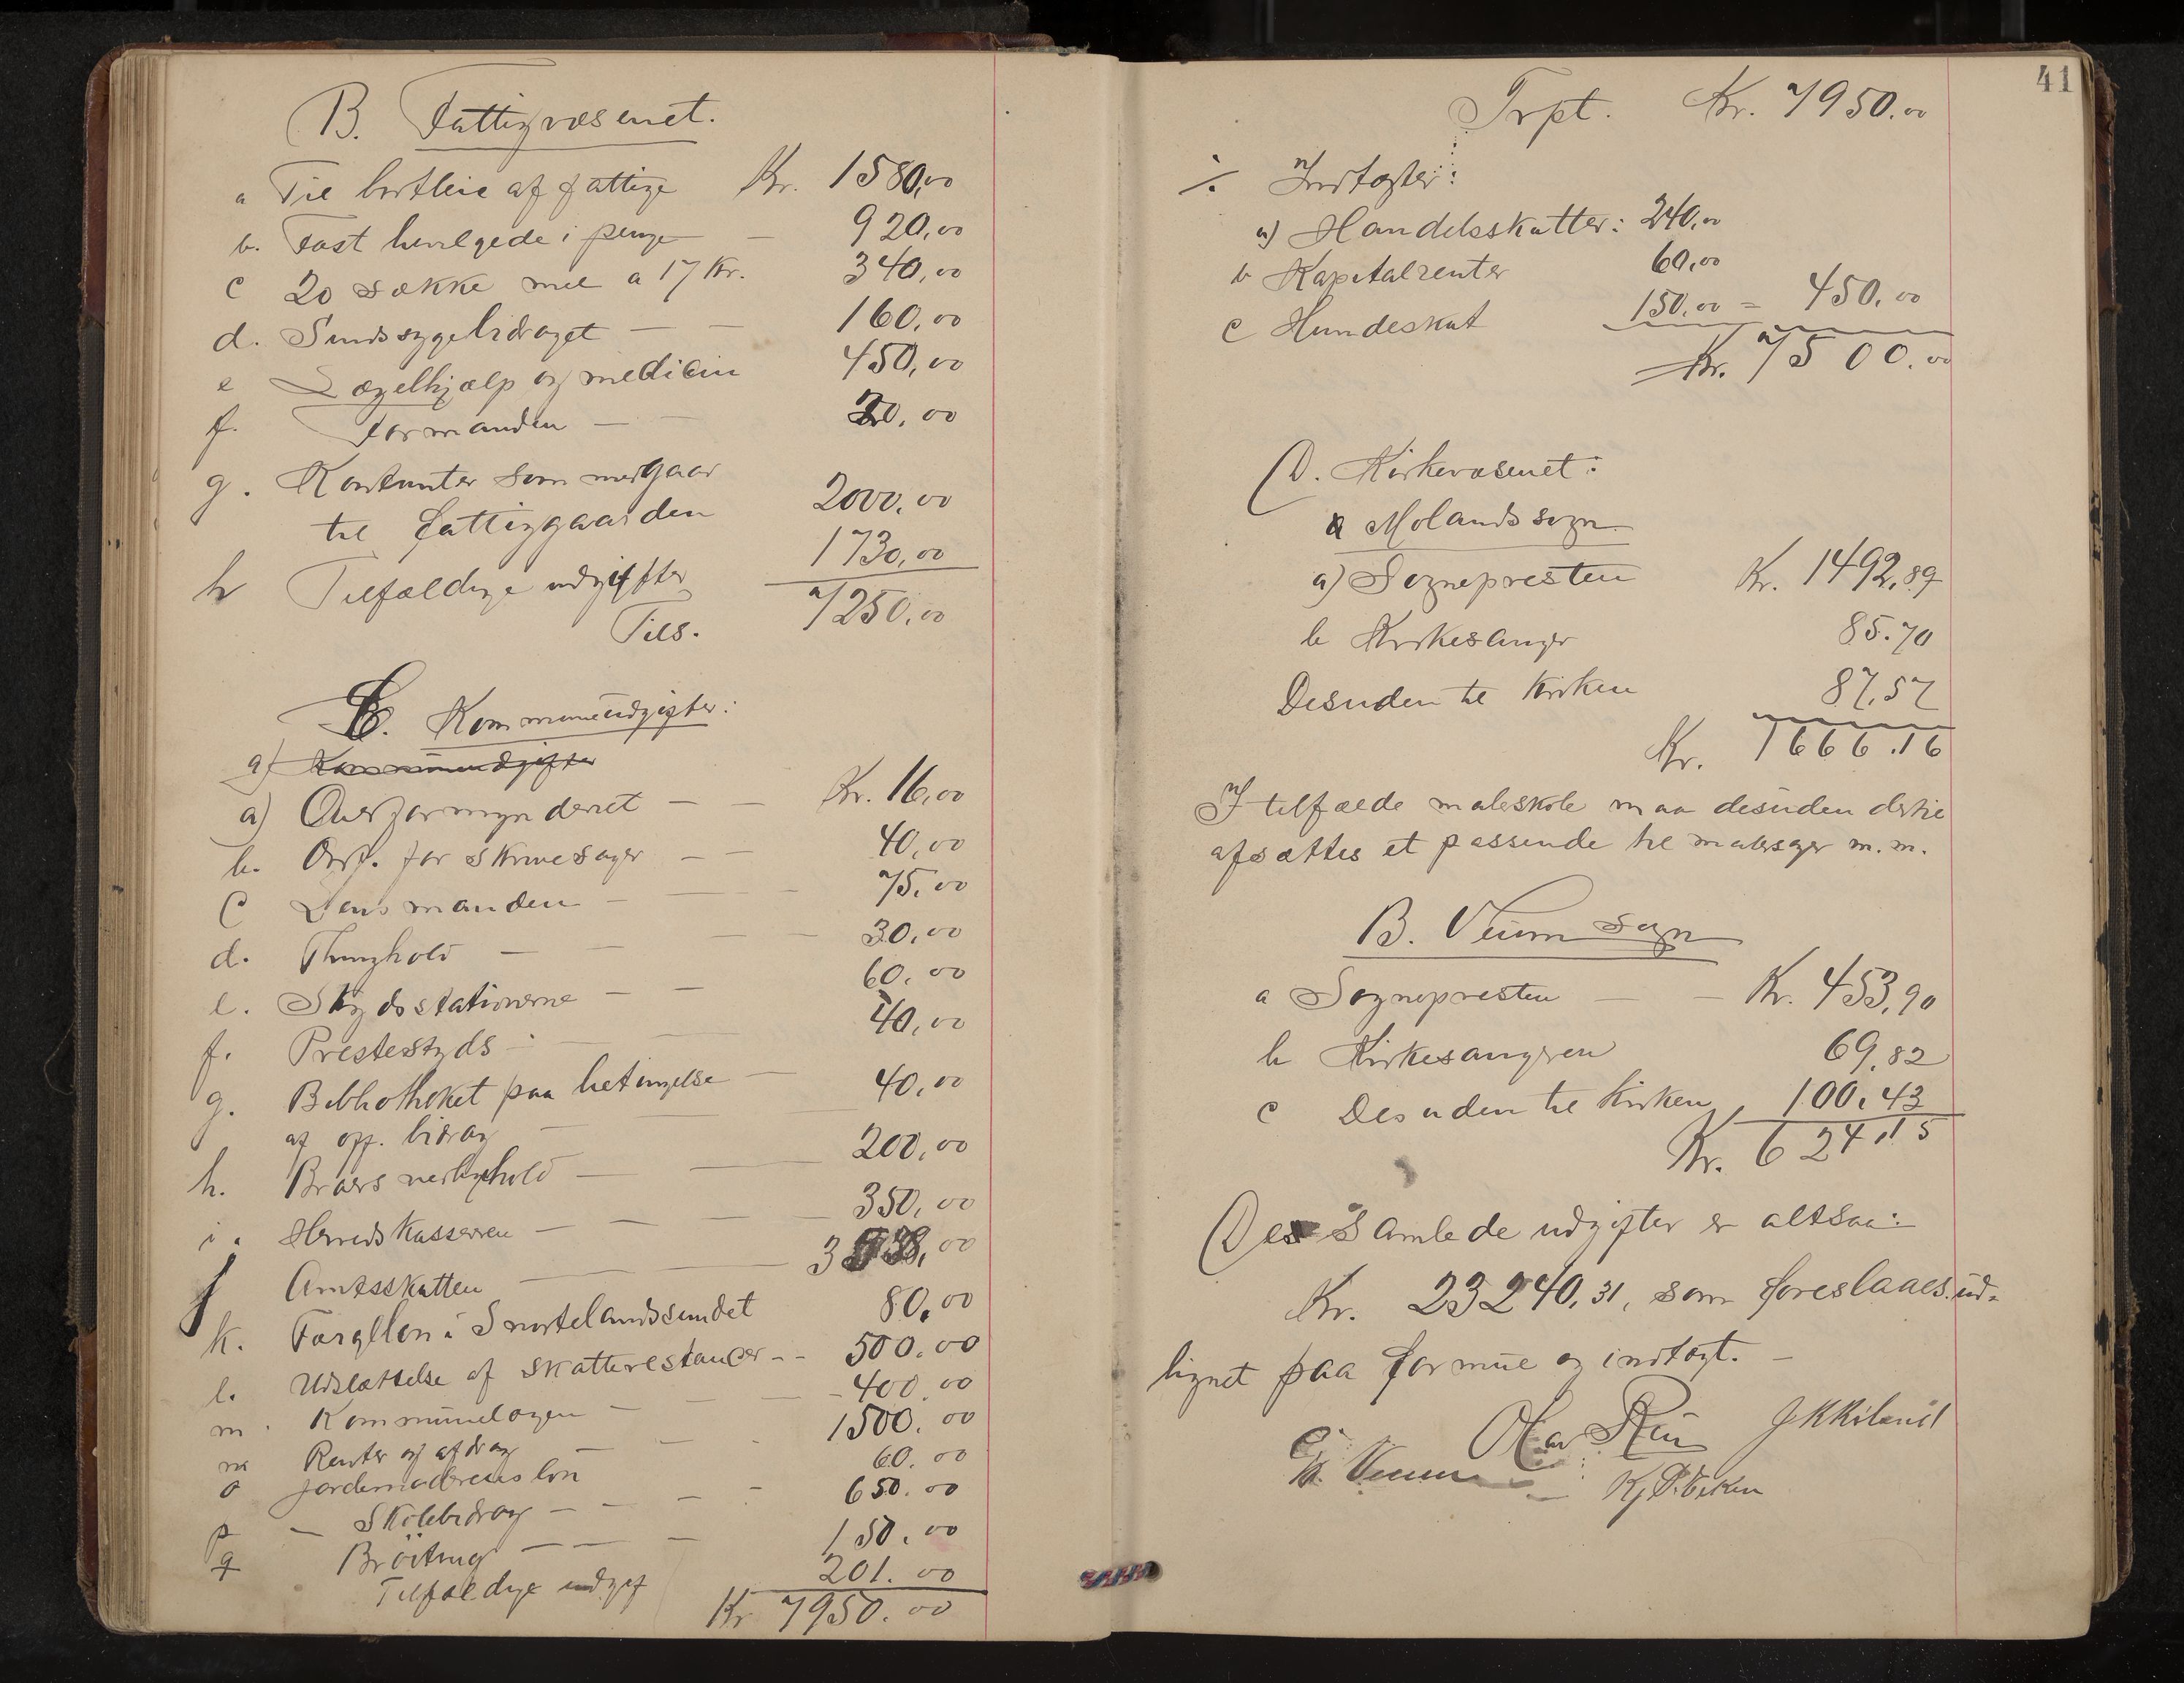 B. Fattigvæsenet.
a Til bortleie af fattige Kr. 1580,00
b. Fast bevilgede i penge — 920,00
c 20 sække mel a 17 Kr. 340,00
d. Sindssygebidraget — — 160,00
e Lægehjælp og medicin 450,00
f. Formanden — — 00
g. Kontanter som medgaar
til fattiggaarden 2000.00
h Tilfældige udgifter 1730,00
Tils. 7250,00
C. Kommuneudgifter:
a) Kommuneudgifter
a) Overformynderiet — — Kr. 16,00
b. Ord. for skrinesager — — 40,00
c Lensmanden — 75.00
d. Thinghold — 30.00
e. Skydsstationerne — — 60.00
f. Presteskyds — 40,00
g. Bibliotheket paa betingelse — 40,00
af opp. bidrag —
h. Broers vedligehold — 200,00
i. Herredskassereren — 350,00
j Amtsskatten 00
k. Færgeløn i Smørtelandssundet 80,00
l. Udsættelse af skatterestancer -- 500.00
m. Kommunelægen — 400.00
n Renter og afdrag — 1500.00
o Jordemoderens løn 60.00
Skolebidrag — — 650.00
p — Brøitning — 150.00
q Tilfældige udgif 201.00
Kr 7950.00
41
Trpt. Kr. 7950.00
⁒ Indtægter:
a) Handelsskatter: 240,00
b Kapitalrenter 60,00
c Hundeskat 150,00 = 450,00
Kr. 7500.00
D. Kirkevæsenet:
a Molands sogn
a) Sognepresten Kr. 1492,89
b Kirkesanger 85.70
Desuden til kirken 87,57
Kr. 1666.16
I tilfælde maa desuden dertil
afsættes et passende til m.m.
B. Veum Sogn
a Sognepresten — — Kr. 453,90
b Kirkesangeren 69,82
c Desuden til kirken, 100,43
Kr. 624,15
De samlede udgifter er altsaa:
Kr. 23240,31, som foreslaaes ud-
lignet paa formue og indtægt. —
Olav JKKiland
Veum